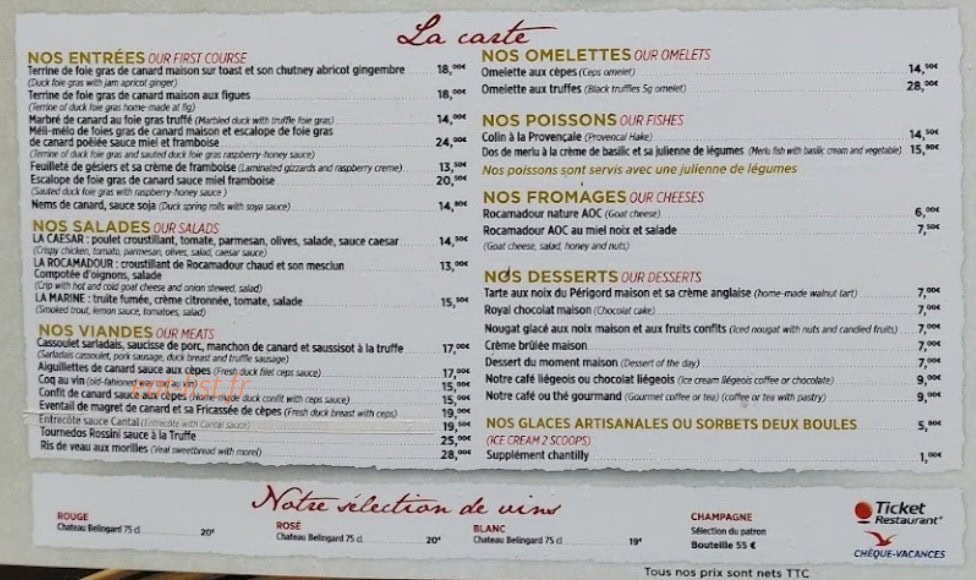 La carte
NOS ENTRÉES OUR FIRST COURSE
Terrine de foie gras de canard maison sur toast et son chutney abricot gingembre 18,00€
(Duck foie gras with jam apricot ginger)
Terrine de foie gras de canard maison aux figues 18,00€
(Terrine of duck foie gras home-made at fig)
Marbré de canard au foie gras truffé (Marbled duck with truffle foie gras) 14,00€
Méli-mélo de foies gras de canard maison et escalope de foie gras
de canard poêlée sauce miel et framboise 24,00€
(Terrine of duck foie gras and sauted duck foie gras raspberry-honey sauce)
Feuilleté de gésiers et sa crème de framboise (Laminated gizzards and raspberry creme) 13,50€
Escalope de foie gras de canard sauce miel framboise 20,50€
(Sauted duck foie gras with raspberry-honey sauce )
Nems de canard, sauce soja (Duck spring rolls with soya sauce) 14,80€
NOS SALADES OUR SALADS
LA CAESAR : poulet croustillant, tomate, parmesan, olives, salade, sauce caesar 14,50€
(Crispy chicken, tomato, parmesan, olives, salad, caesar sauce)
LA ROCAMADOUR : croustillant de Rocamadour chaud et son mesclun 13,00€
Compotée d'oignons, salade
(Crip with hot and cold goat cheese and onion stewed, salad)
LA MARINE : truite fumée, crème citronnée, tomate, salade 15,50€
(Smoked trout, lemon sauce, tomatoes, salad)
NOS VIANDES OUR MEATS
Cassoulet sarladais, saucisse de porc, manchon de canard et saussisot à la truffe 17,00€
(Sarladais cassoulet, pork sausage, duck breast and truffle sausage)
Aiguillettes de canard sauce aux cèpes (Fresh duck filet ceps sauce) 17,00€
Coq au vin (old-fashioned coq au vin) 15,00€
Confit de canard sauce aux cèpes (Home-made duck confit with ceps sauce) 15,00€
Eventail de magret de canard et sa Fricassée de cèpes (Fresh duck breast with ceps) 19,00€
Entrecôte sauce Cantal (Entrecôte with Cantal sauce) 19,50€
Tournedos Rossini sauce à la Truffe 25,00€
Ris de veau aux morilles (Veal sweetbread with morel) 28,00€
eat-list.fr
NOS OMELETTES OUR OMELETS
Omelette aux cèpes (Ceps omelet) 14,50€
Omelette aux truffes (Black truffles 5g omelet) 28,00€
NOS POISSONS OUR FISHES
Colin à la Provençale (Provencal Hake) 14,50€
Dos de merlu à la crème de basilic et sa julienne de légumes (Merlu fish with basilic cream and vegetable) 15,90€
Nos poissons sont servis avec une julienne de légumes
NOS FROMAGES OUR CHEESES
Rocamadour nature AOC (Goat cheese) 6,00€
Rocamadour AOC au miel noix et salade 7,50€
(Goat cheese, salad, honey and nuts)
NOS DESSERTS OUR DESSERTS
Tarte aux noix du Périgord maison et sa crème anglaise (home-made walnut tart) 7,00€
Royal chocolat maison (Chocolat cake) 7,00€
Nougat glacé aux noix maison et aux fruits confits (Iced nougat with nuts and candied fruits) 7,00€
Crème brûlée maison 7,00€
Dessert du moment maison (Dessert of the day) 7,00€
Notre café liégeois ou chocolat liégeois (Ice cream liégeois coffee or chocolate) 9,00€
Notre café ou thé gourmand (Gourmet coffee or tea) (coffee or tea with pastry) 9,00€
NOS GLACES ARTISANALES OU SORBETS DEUX BOULES 5,90€
(ICE CREAM 2 SCOOPS)
Supplément chantilly 1,00€
Notre sélection de vins
ROUGE
Chateau Belingard 75 cl 20€
ROSÉ
Chateau Belingard 75 cl 20€
BLANC
Chateau Belingard 75 cl 19€
CHAMPAGNE
Sélection du patron
Bouteille 55 €
Ticket
Restaurant
CHÈQUE-VACANCES
Tous nos prix sont nets TTC